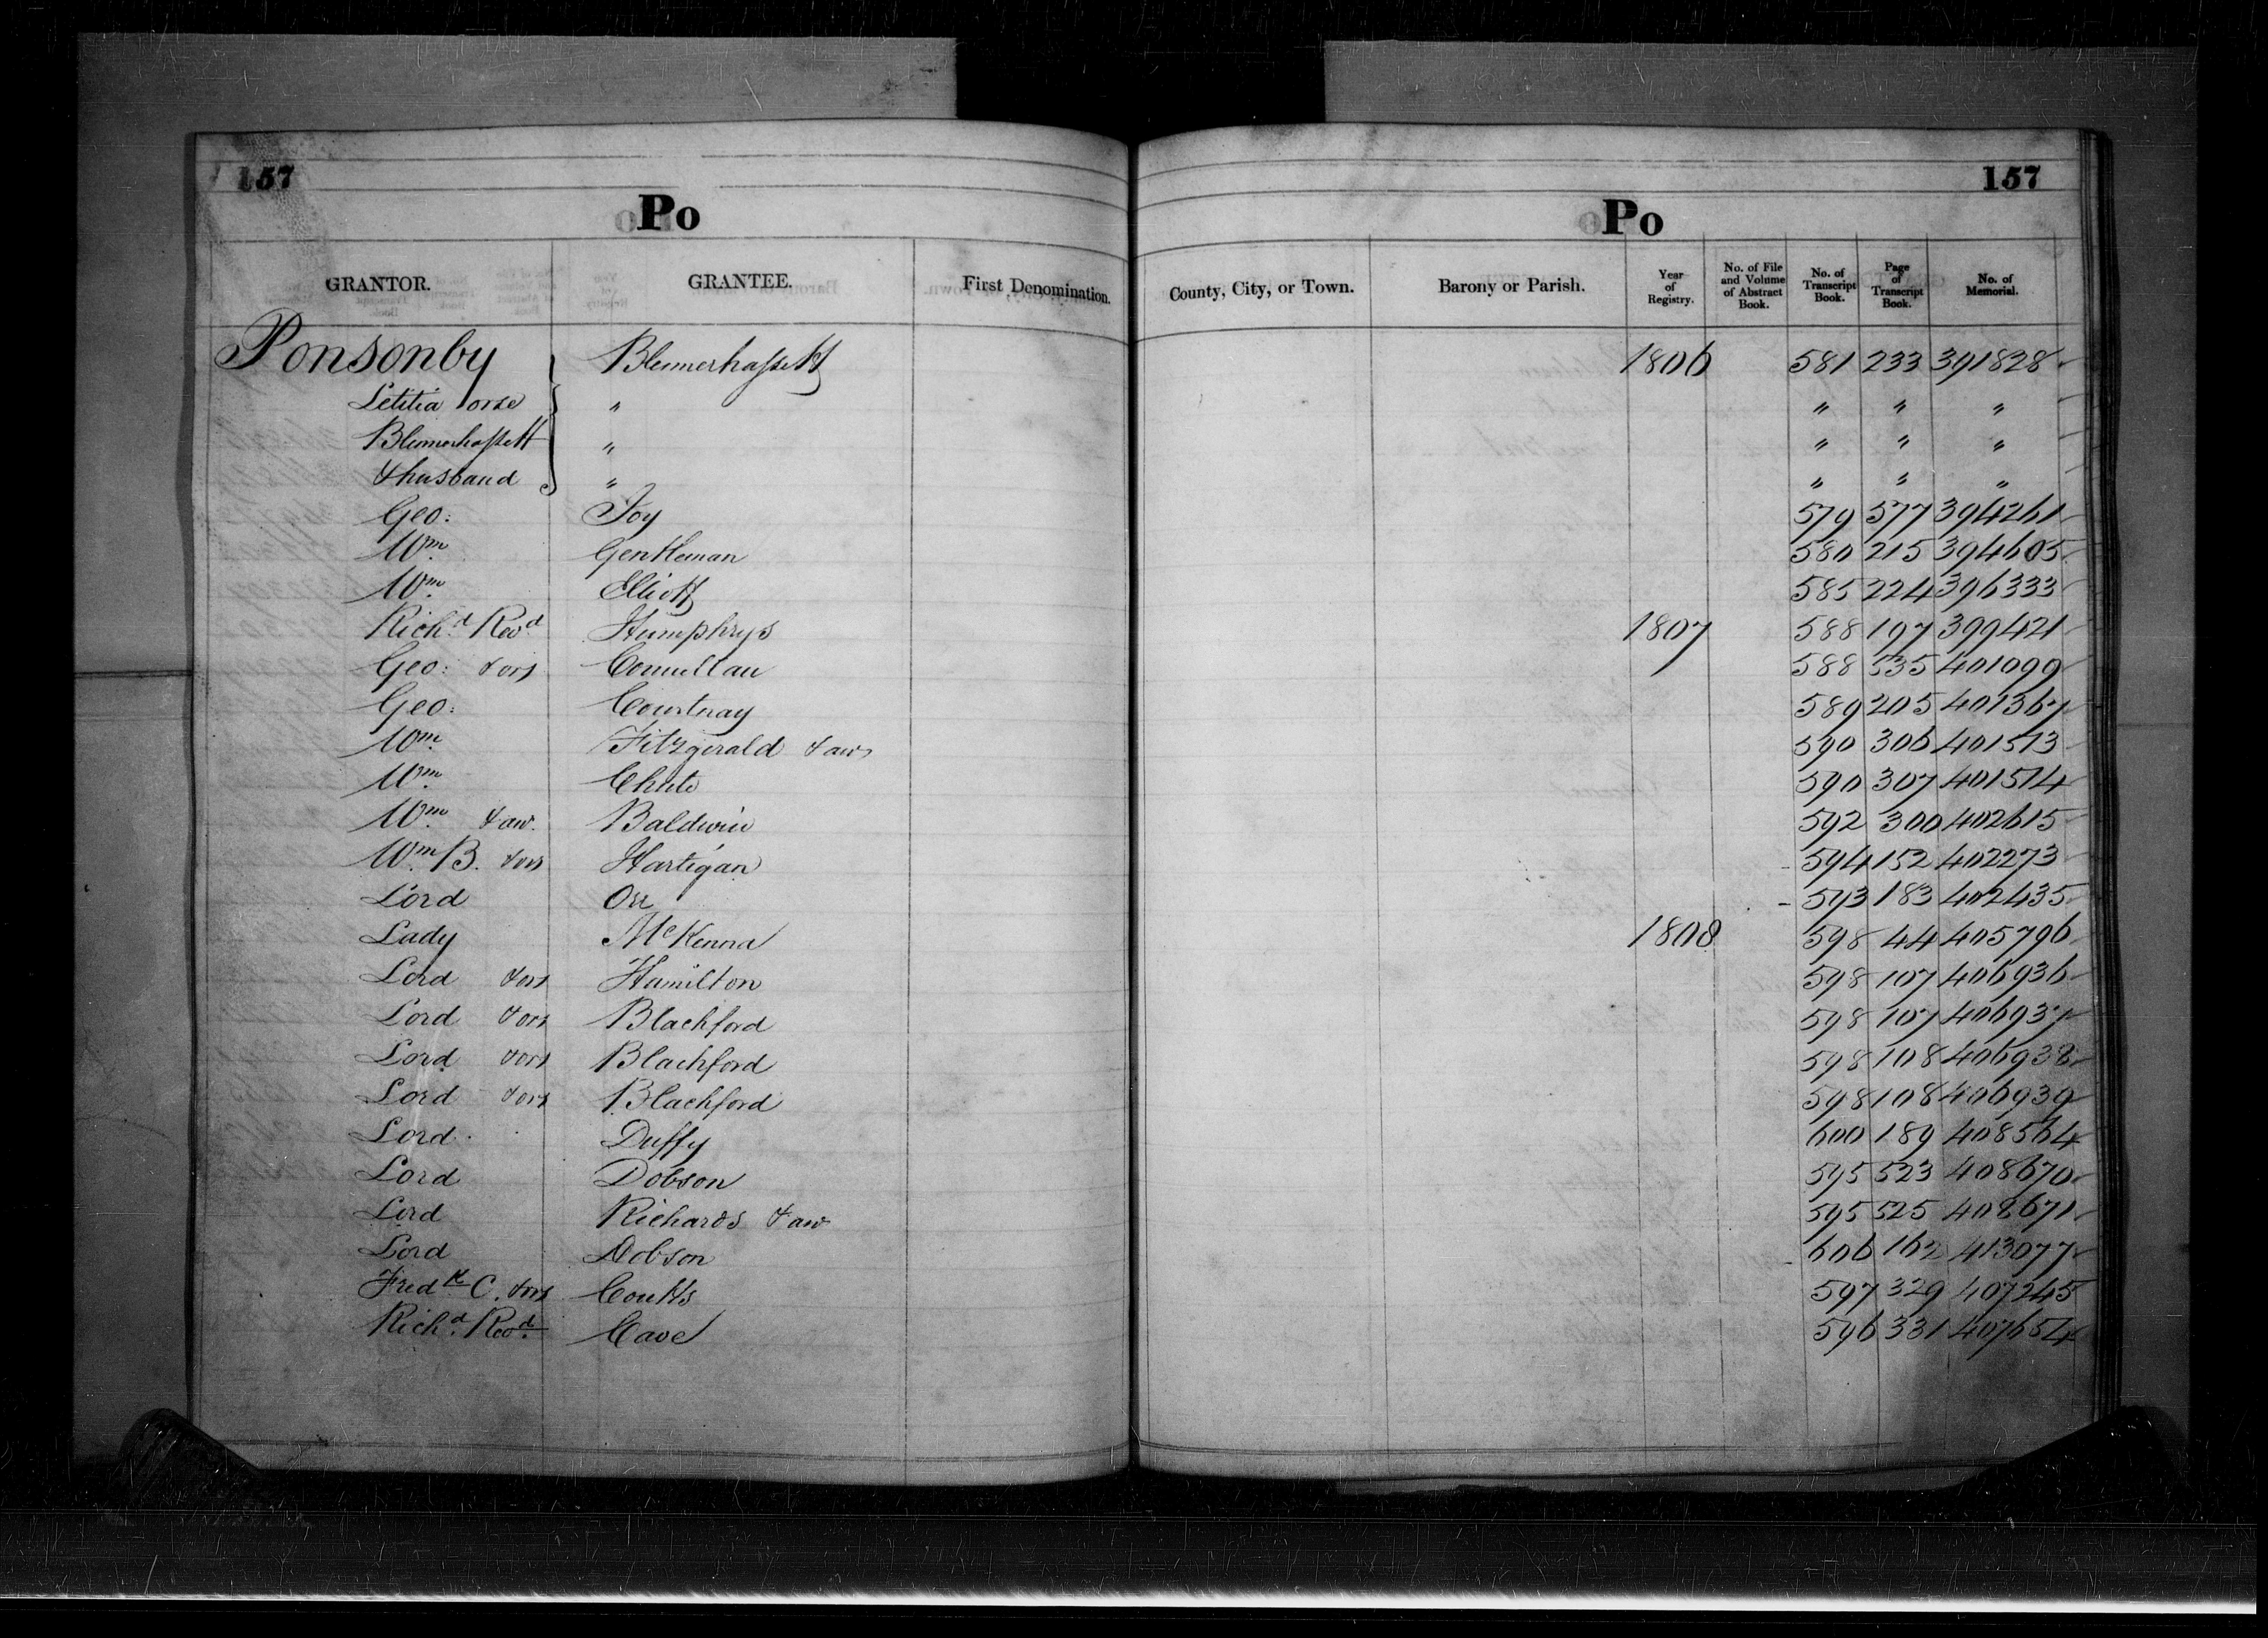 157 157
Po Po
GRANTOR. GRANTEE. First Denomination. County, City, or Town. Barony or Parish. Year of Registry. No. of File and Volume of Abstract Book. No. of Transcript Book. Page of Transcript Book. No. of Memorial.
Ponsonby Blennerhassett 1806 581 233 391828
Letitia orse " " " "
Blennerhassett " " " "
& husband " " " "
Geo: Joy 579 577 394261
Wm. Gentleman 580 215 394605
Wm. Elliott 585 224 396333
Richd. Revd. Humphrys 1807 588 197 399421
Geo: & ors Connellan 588 535 401099
Geo: Courtnay 589 205 401367
Wm. Fitzgerald & anr 590 306 401513
Wm. Chute 590 307 401514
Wm. & anr. Baldwin 592 300 402615
Wm. B. & ors Hartigan 594 152 402273
Lord Orr 593 183 402435
Lady McKenna 1808 598 44 405796
Lord & ors Hamilton 598 107 406936
Lord & ors Blachford 598 107 406937
Lord & ors Blachford 598 108 406938
Lord & ors Blachford 598 108 406939
Lord Duffy 600 189 408564
Lord Dobson 595 523 408670
Lord Richards & anr 595 525 408671
Lord Dobson 606 162 413077
Fredk C. & ors Coutts 597 329 407245
Richd. Revd. Cave 596 331 407654